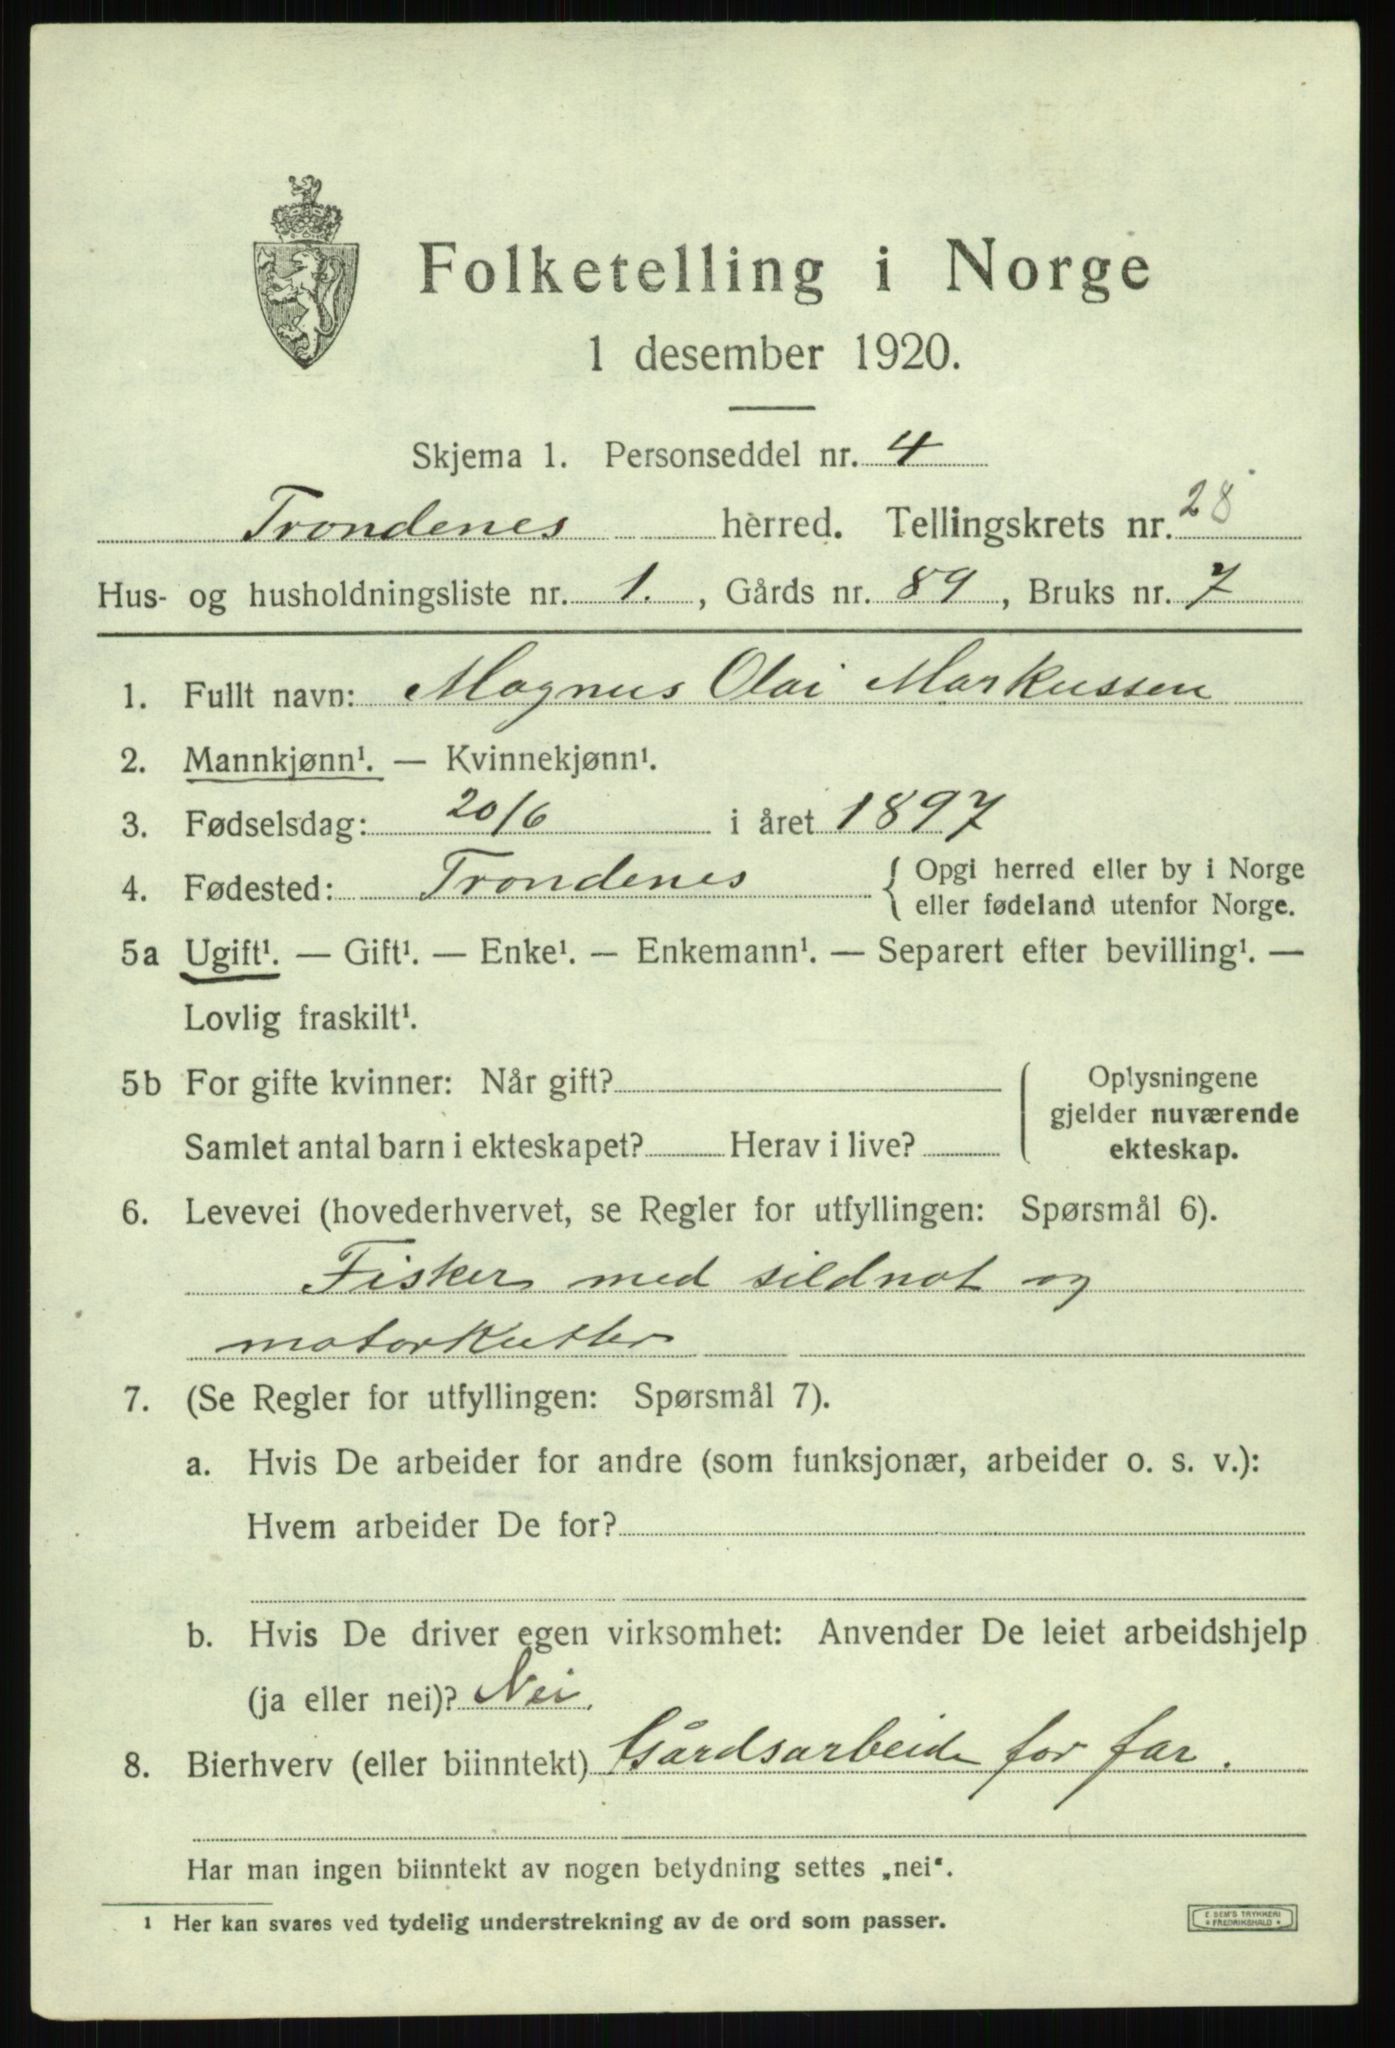 Folketelling i Norge
1 desember 1920.
Skjema 1. Personseddel nr. 4
Trondenes herred. Tellingskrets nr. 28
Hus- og husholdningsliste nr. 1. , Gårds nr. 89 , Bruks nr. 7
1. Fullt navn: Magnus Olai Markussen
2. Mannkjønn¹. — Kvinnekjønn¹.
3. Fødselsdag: 20/6 i året 1897
4. Fødested: Trondenes { Opgi herred eller by i Norge
eller fødeland utenfor Norge.
5a Ugift¹. — Gift¹. — Enke¹. — Enkemann¹. — Separert efter bevilling¹. —
Lovlig fraskilt¹.
5b For gifte kvinner: Når gift?
Samlet antal barn i ekteskapet? Herav i live?
Oplysningene
gjelder nuværende
ekteskap.
6. Levevei (hovederhvervet, se Regler for utfyllingen: Spørsmål 6).
Fisker med sildnot og
motorkutter
7. (Se Regler for utfyllingen: Spørsmål 7).
a. Hvis De arbeider for andre (som funksjonær, arbeider o. s. v.):
Hvem arbeider De for?
b. Hvis De driver egen virksomhet: Anvender De leiet arbeidshjelp
(ja eller nei)? Nei.
8. Bierhverv (eller biinntekt) Gårdsarbeide for far.
Har man ingen biinntekt av nogen betydning settes „nei“.
¹ Her kan svares ved tydelig understrekning av de ord som passer.
E. SEM'S TRYKKERI
* FREDRIKSHALD *